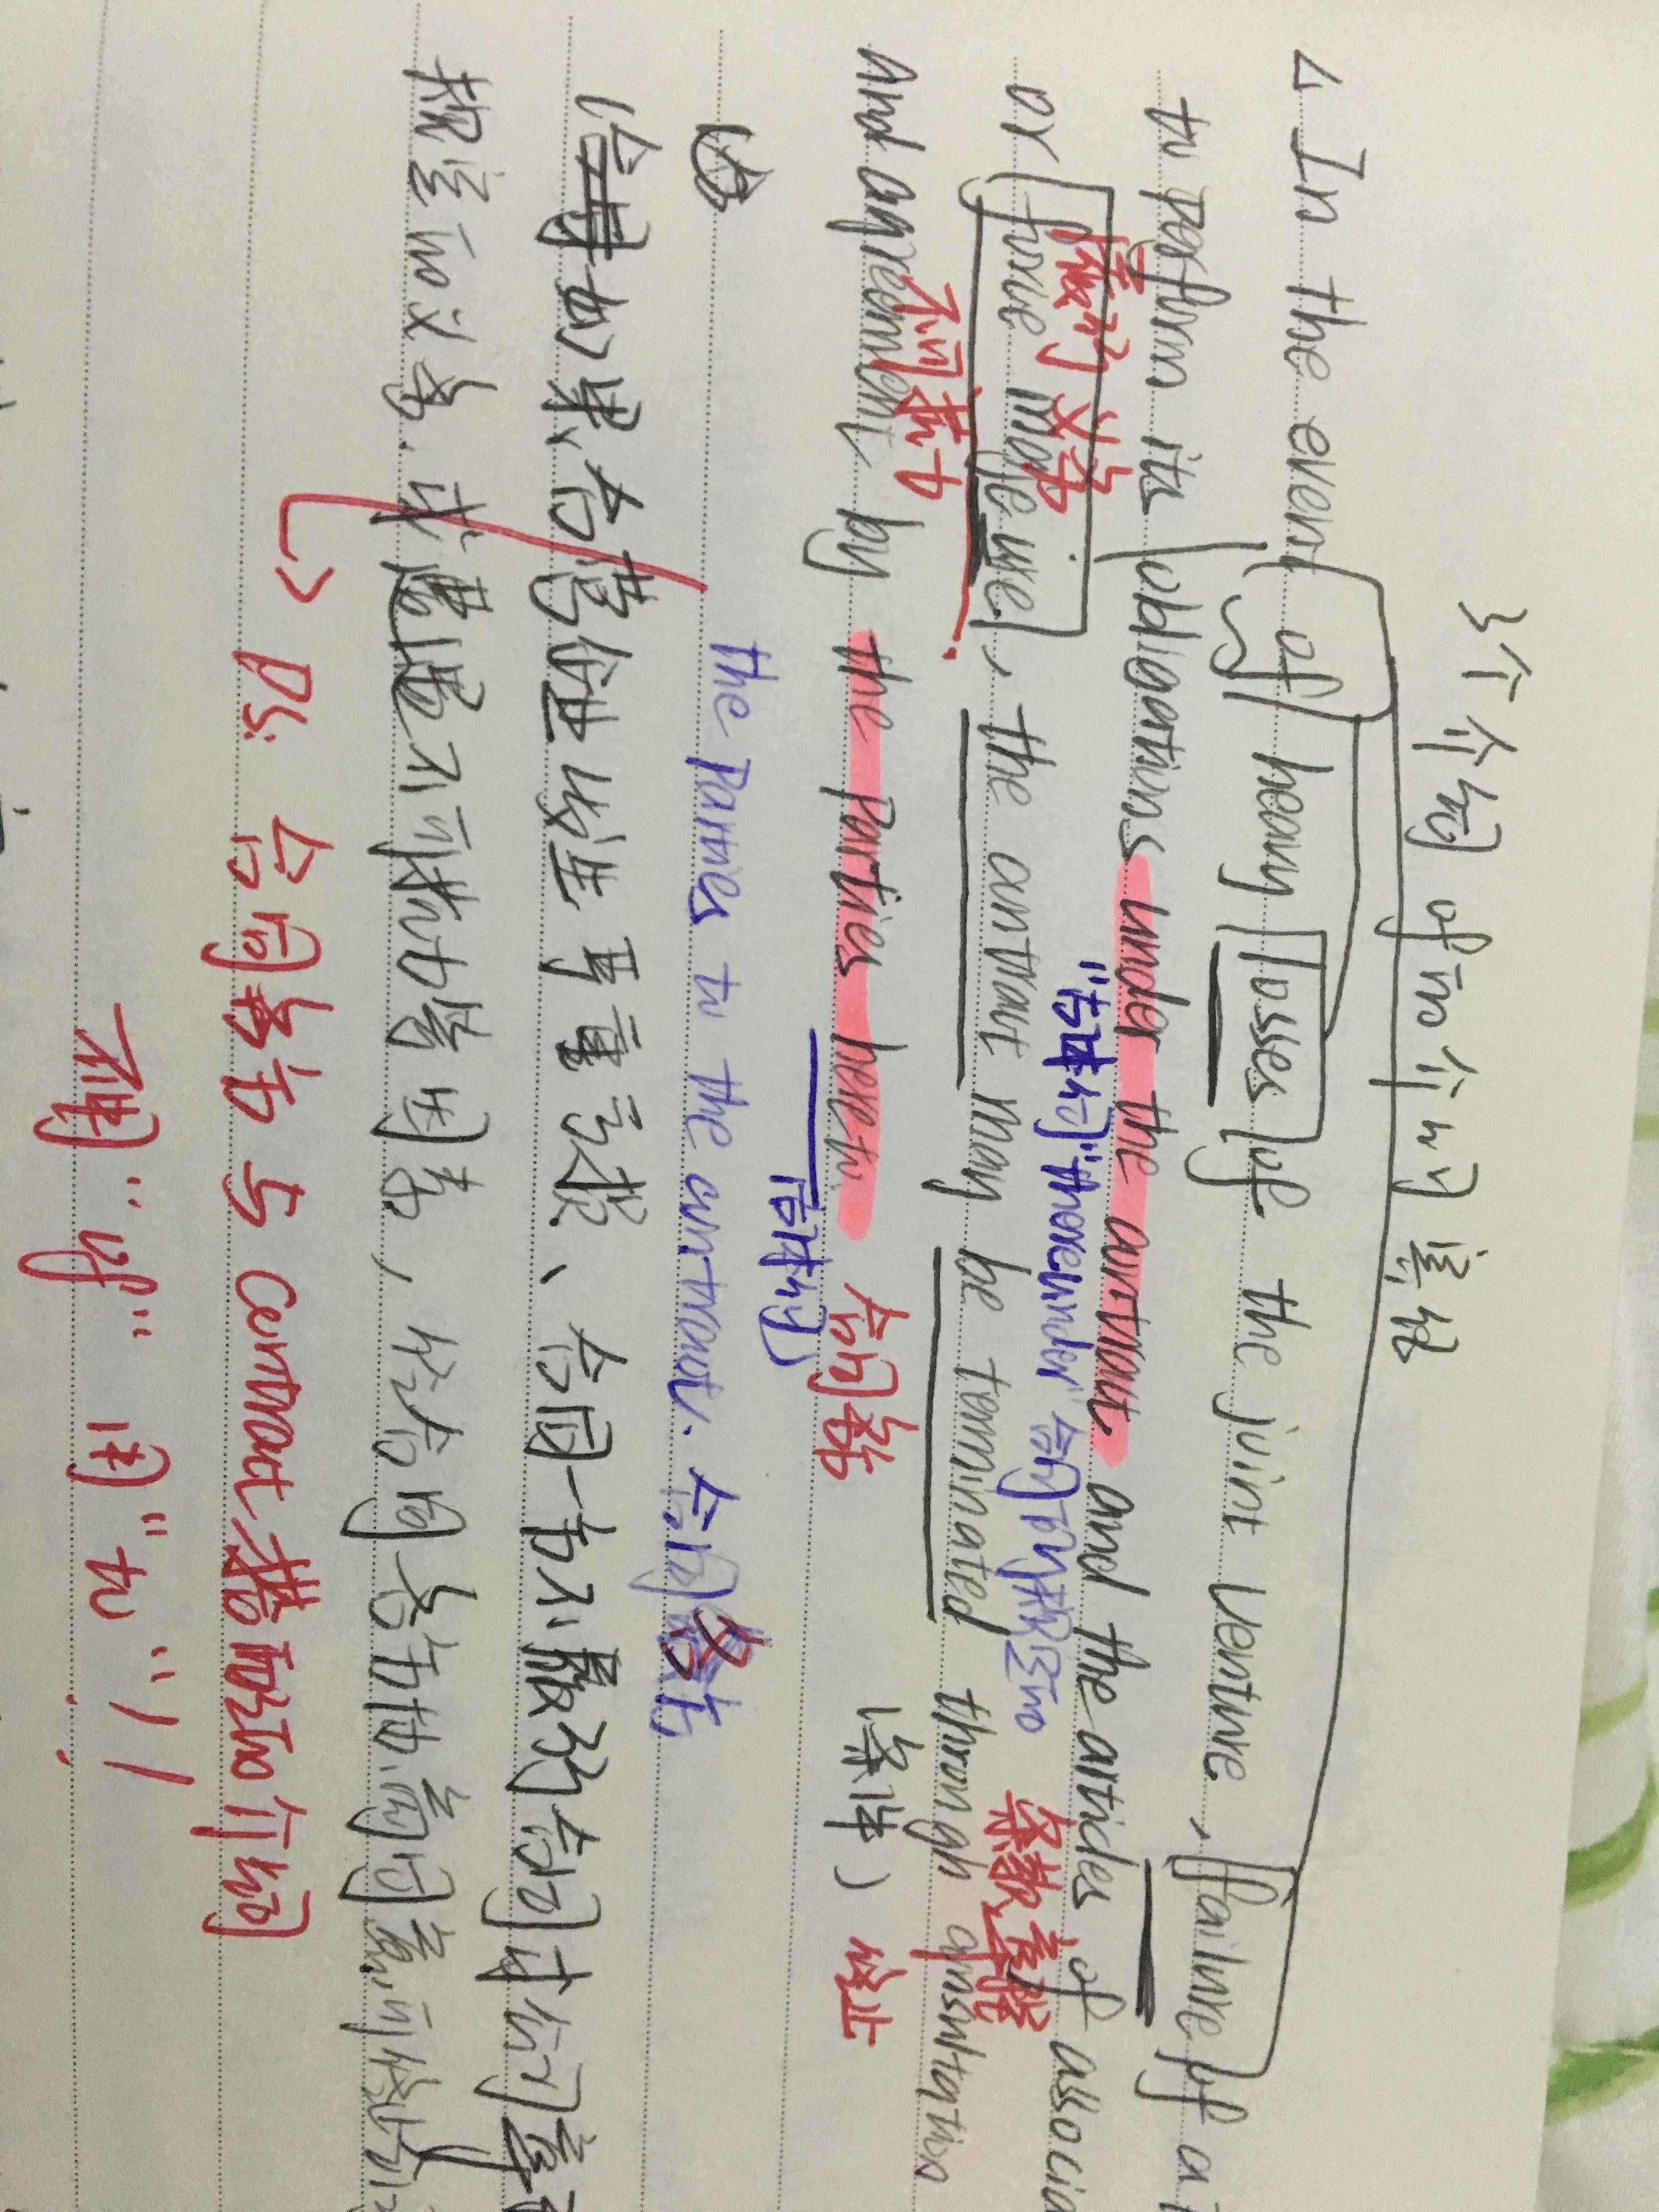 3个介词 of的介词宾语
In the event of heavy losses of the joint venture, failure of a
to perform its obligations under the contract and the articles of associa
履行义务
"古体词" thereunder 合同下所规定的
条款章程
or force majeure, the contract may be terminated through consultation
不可抗力
(条件) 终止
and agreement by the parties hereto
古体词
合同各方
the parties to the contract. 合同各方
如果合营企业发生严重亏损、合同一方不履行合同和公司章
规定的义务,或遭遇不可抗力等因素,经合同各方协商同意,可终止
PS: 合同各方 与 contract 搭配的介词
不用"of" 用"to"!